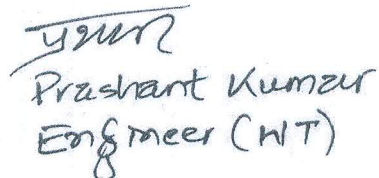 प्रशान्त
Prashant Kumar
Engineer (WT)